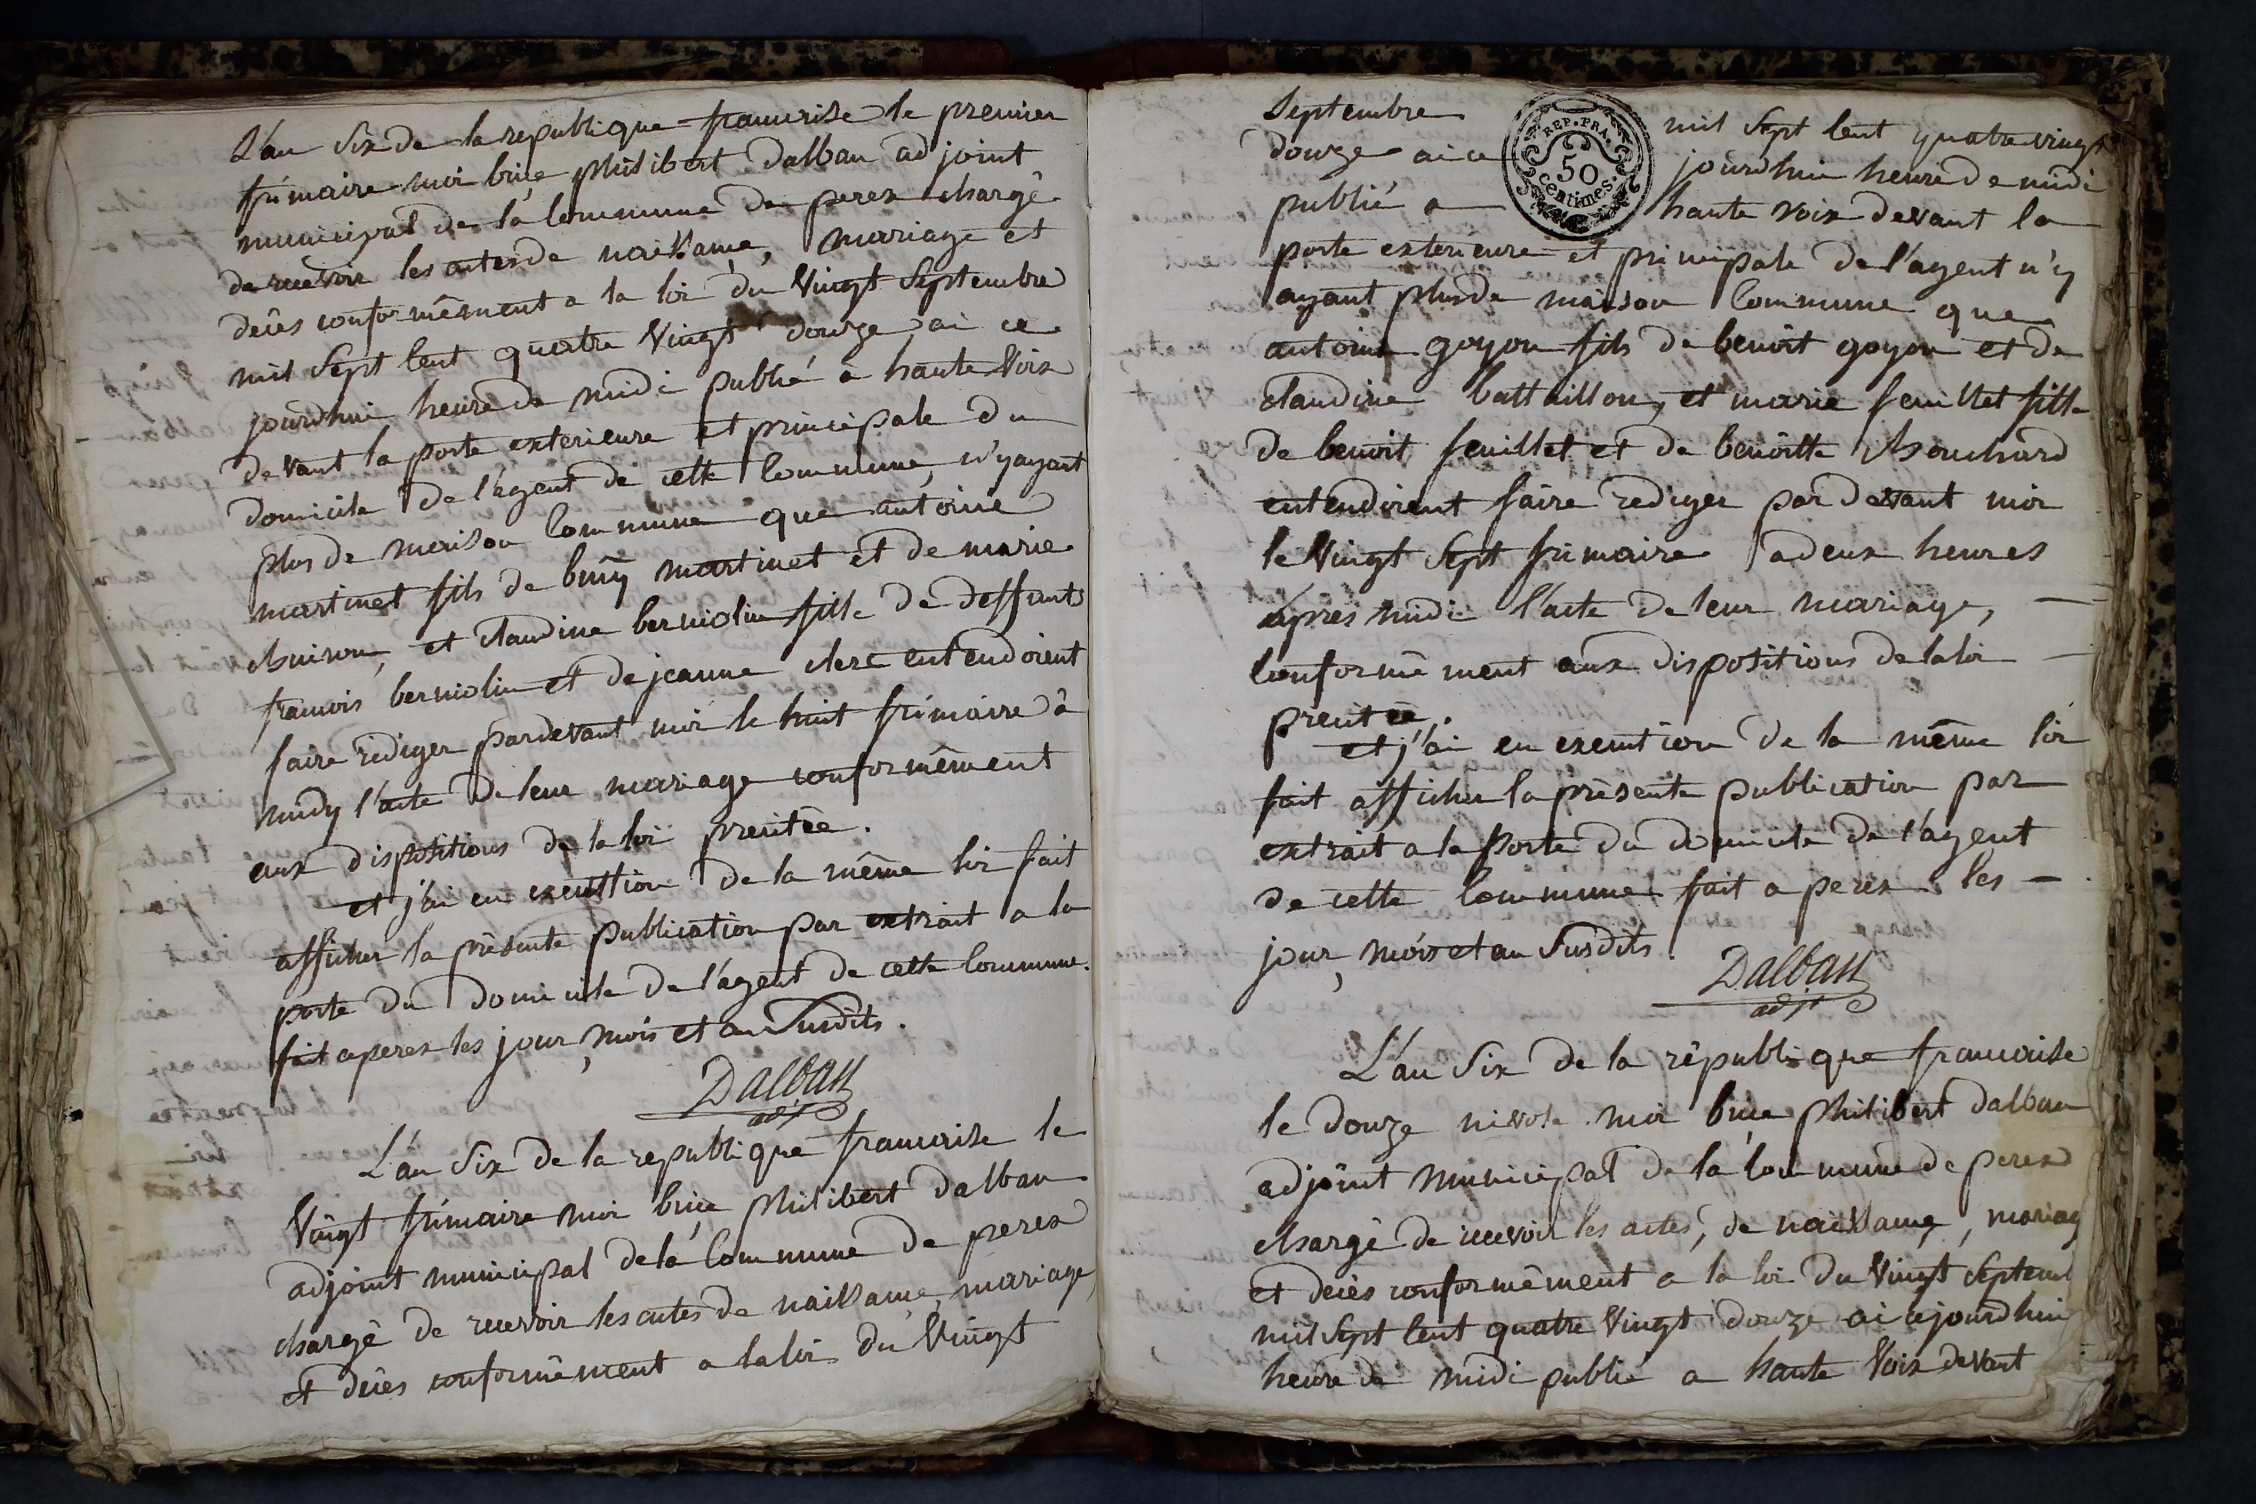 L'an Six de la republique francoise le premier
frimaire moi brice philibert dalban adjoint
municipal de la Commune de perex chargé
de recevoir les actes de naissance, mariage et
deçès conformêment a la loi du Vingt Septembre
mil Sept Cent quatre Vingt douze, ai ce
jourdhui heure de midi publié a haute Voix
devant la porte exterieure et principale du
domicile de l'agent de cette Commune, n'yayant
plus de maison Commune que antoine
martinet fils de martinet et de marie
et claudine berniolin fille de deffunts
francois berniolin et de jeanne clerc entendoient
faire rédiger pardevant moi le huit frimaire à
midy l'acte de leur mariage conformêment
aux dispositions de la loi précitée.
et j'ai en execution de la même loi fait
afficher la présente publication par extrait a la
porte du domicile de l'agent de cette Commune.
fait a perex les jour, mois et an Susdits.
Dalban
adjt
L'an Six de la republique francoise le
Vingt frimaire moi brice philibert dalban
adjoint municipal de la Commune de perex
chargé de recevoir les actes de naissance, mariage,
et deçès conformêment a la loi du Vingt
Septembre mil Sept Cent quatre vingt
douze ai ce jourdhui heure de midi
publié a haute voix devant la
REP. FRA.
50
centimes.
porte exterieure et principale de l'agent n'y
ayant plus de maison Commune que
antoine goyon fils de benoit goyon et de
claudine battaillon, et marie feuillet fille
de benoit feuillet et de benoitte
entendoient faire rediger par devant moi
le Vingt Sept frimaire a deux heures
après midi l'acte de leur mariage,
Conformêment aux dispositions de la loi
précitée.
et j'ai en execution de la même loi
fait afficher la présente publication par
extrait a la porte du domicile de l'agent
de cette Commune fait a perex les
jour, mois et an Susdits.
Dalban
adjt
L'an Six de la république francoise
le douze nivose moi brice philibert dalban
adjoint municipal de la Commune de perex
chargé de recevoir les actes, de naissance, mariag
et deçès conformêment a la loi du Vingt Septem
mil Sept Cent quatre Vingt douze ai cejourdhui
heure de midi publié a haute Voix devant